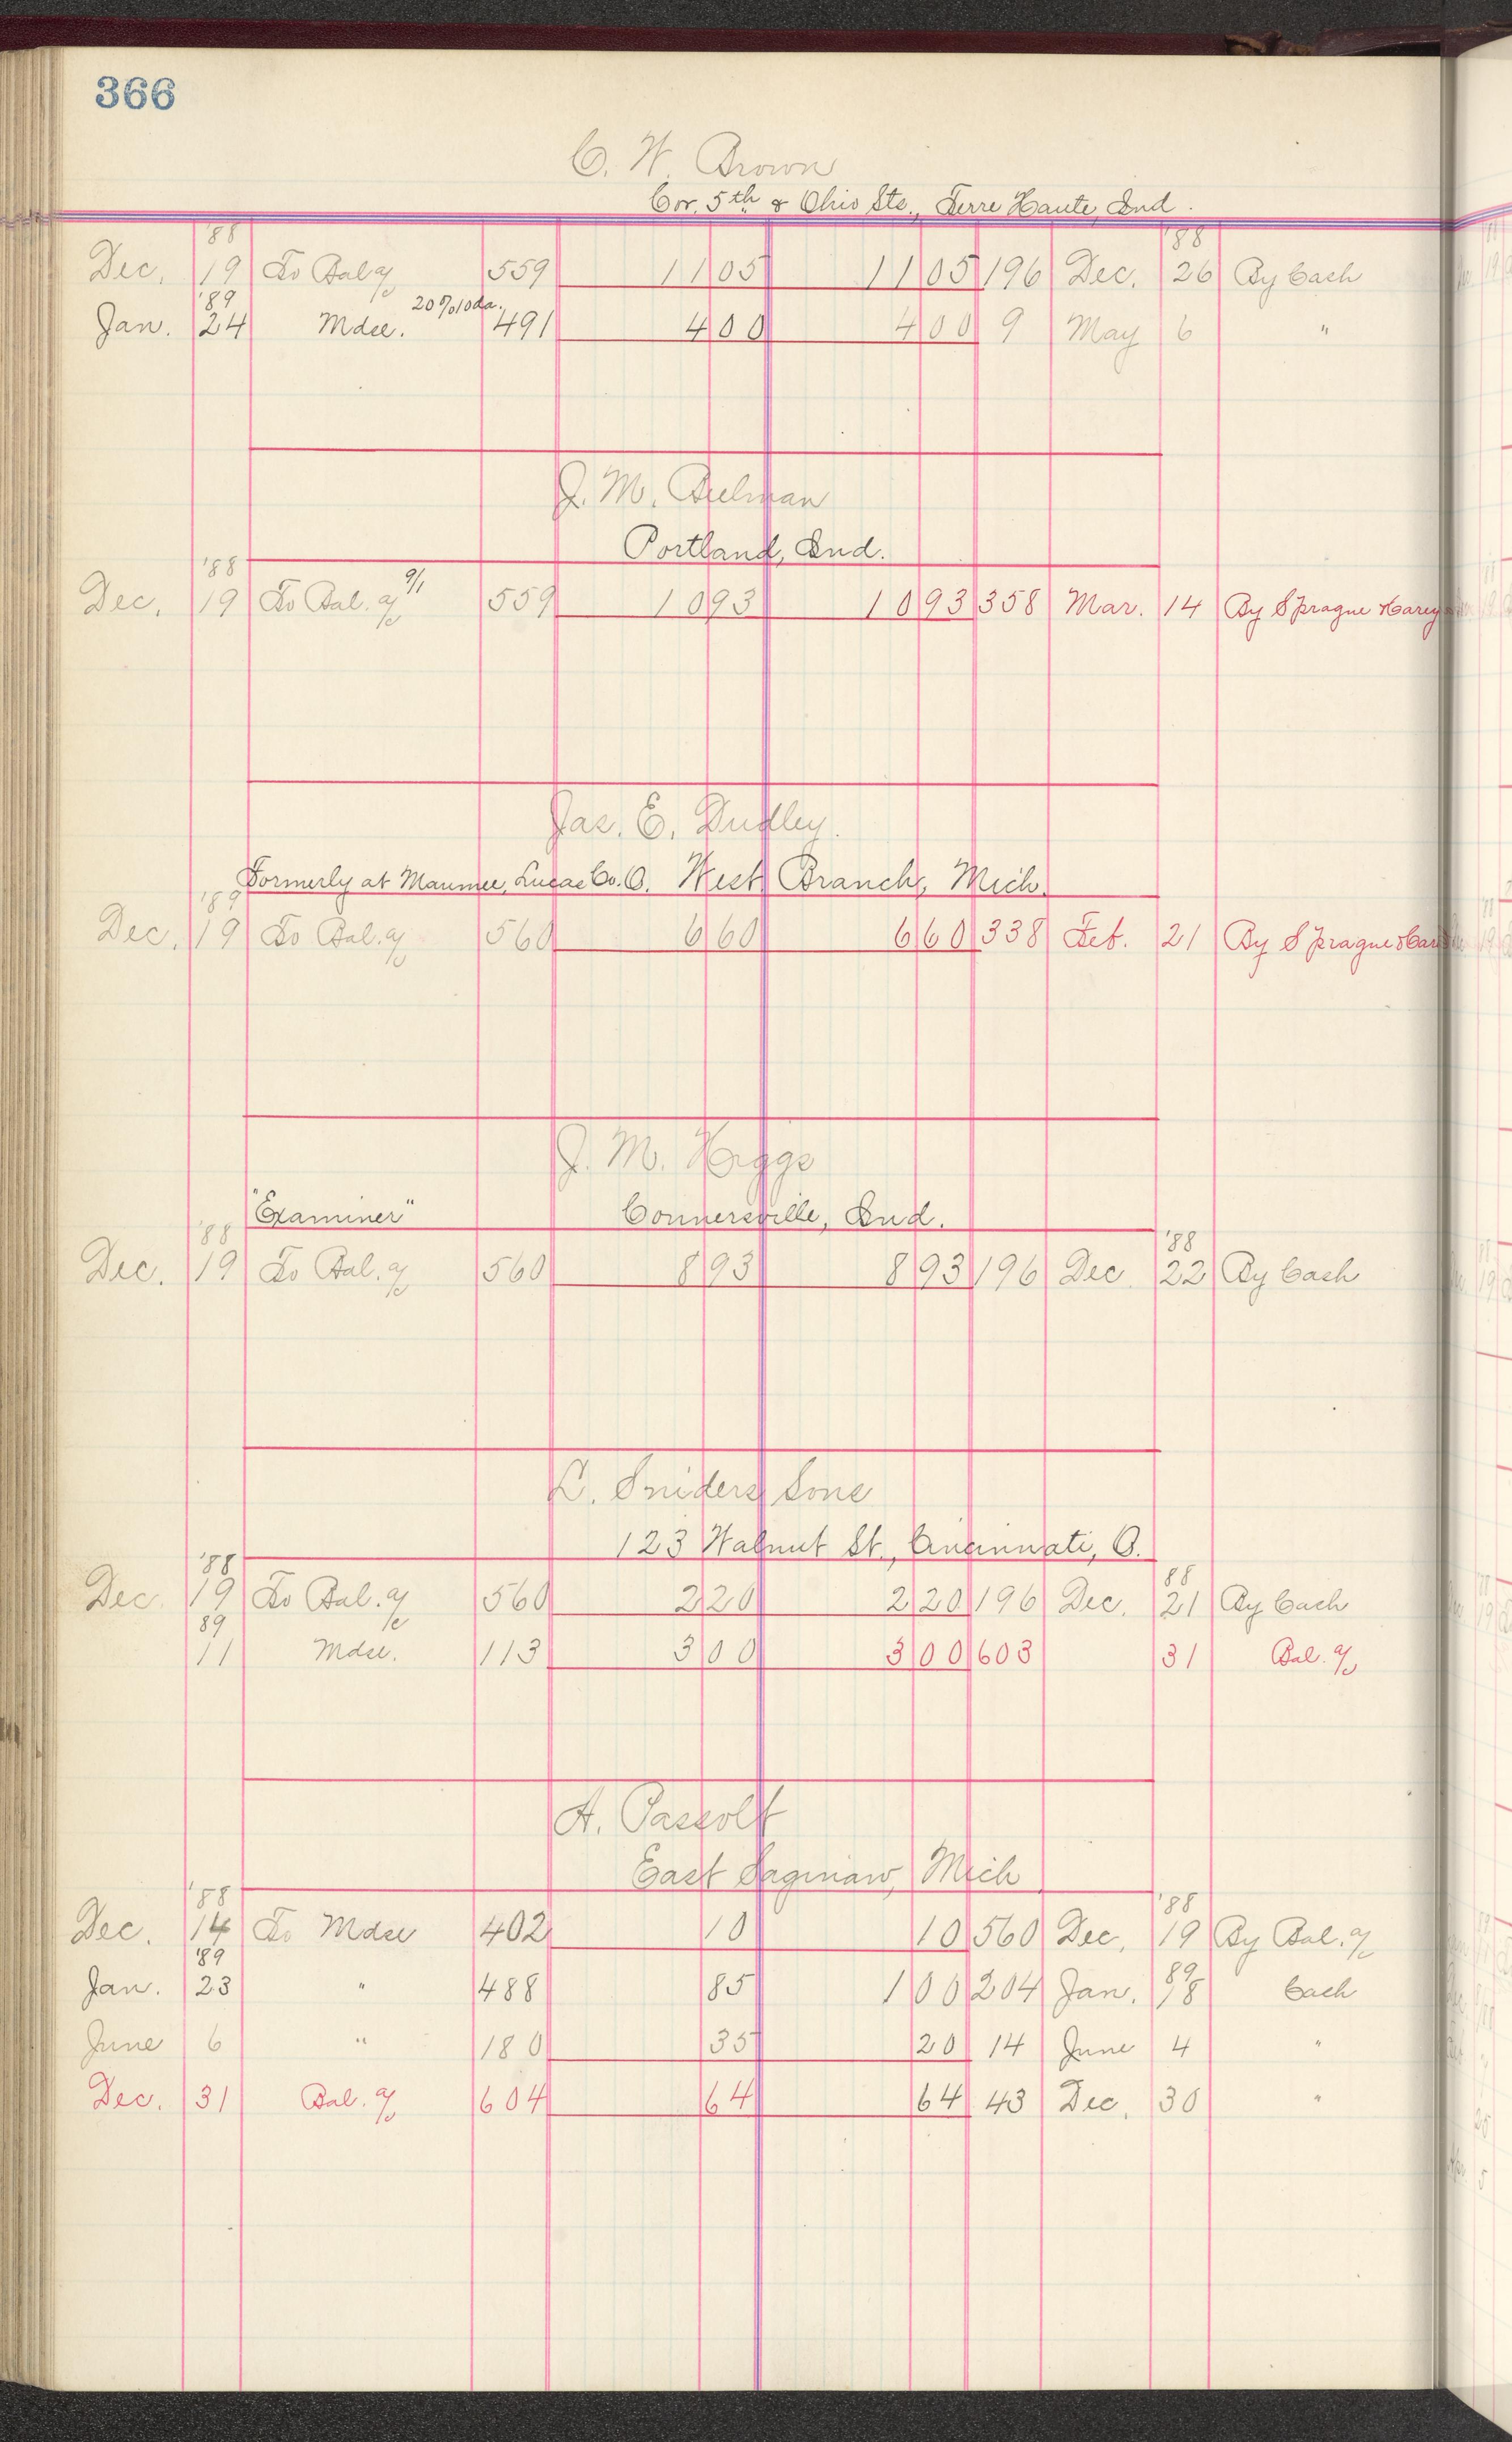 366
C. W. Brown
Cor. 5th & Ohio Sts., Terre Haute, Ind.
'88 '88
Dec. 19 To Bal a/c 559 11 05 11 05 196 Dec. 26 By Cash
'89 20% 10 da.
Jan. 24 Mdse. 491 4 00 4 00 9 May 6 "
J. M. Bulman
Portland, Ind.
'88
Dec. 19 To Bal. a/c 9/1 559 10 93 10 93 358 Mar. 14 By Sprague
Jas. E. Dudley.
Formerly at Maumee, Lucas Co. O. West Branch, Mich.
'89
Dec. 19 To Bal. a/c 560 6 60 6 60 338 Feb. 21 By Sprague
J. M. Higgs
"Examiner" Connersville, Ind.
'88 '88
Dec. 19 To Bal. a/c 560 8 93 8 93 196 Dec 22 By Cash
L. Sniders Sons
123 Walnut St., Cincinnati, O.
'88 88
Dec. 19 To Bal. a/c 560 2 20 2 20 196 Dec. 21 By Cash
89
11 Mdse. 113 3 00 3 00 603 31 Bal. a/c
A. Passolt
East Saginaw, Mich
'88 '88
Dec. 14 To Mdse 402 10 10 560 Dec. 19 By Bal. a/c
'89 89
Jan. 23 " 488 85 1 00 204 Jan. 18 Cash
June 6 " 180 35 20 14 June 4 "
Dec. 31 Bal. a/c 604 64 64 43 Dec. 30 "